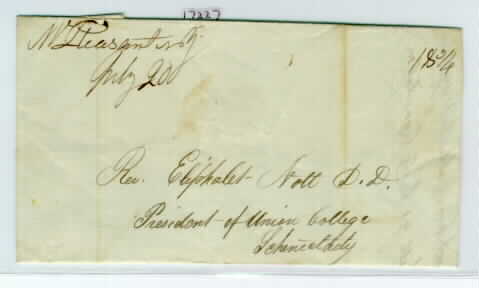 17227
Mt Pleasant N.Y.
July 20
18 3/4
Rev. Eliphalet Nott D.D.
President of Union College
Schenectady